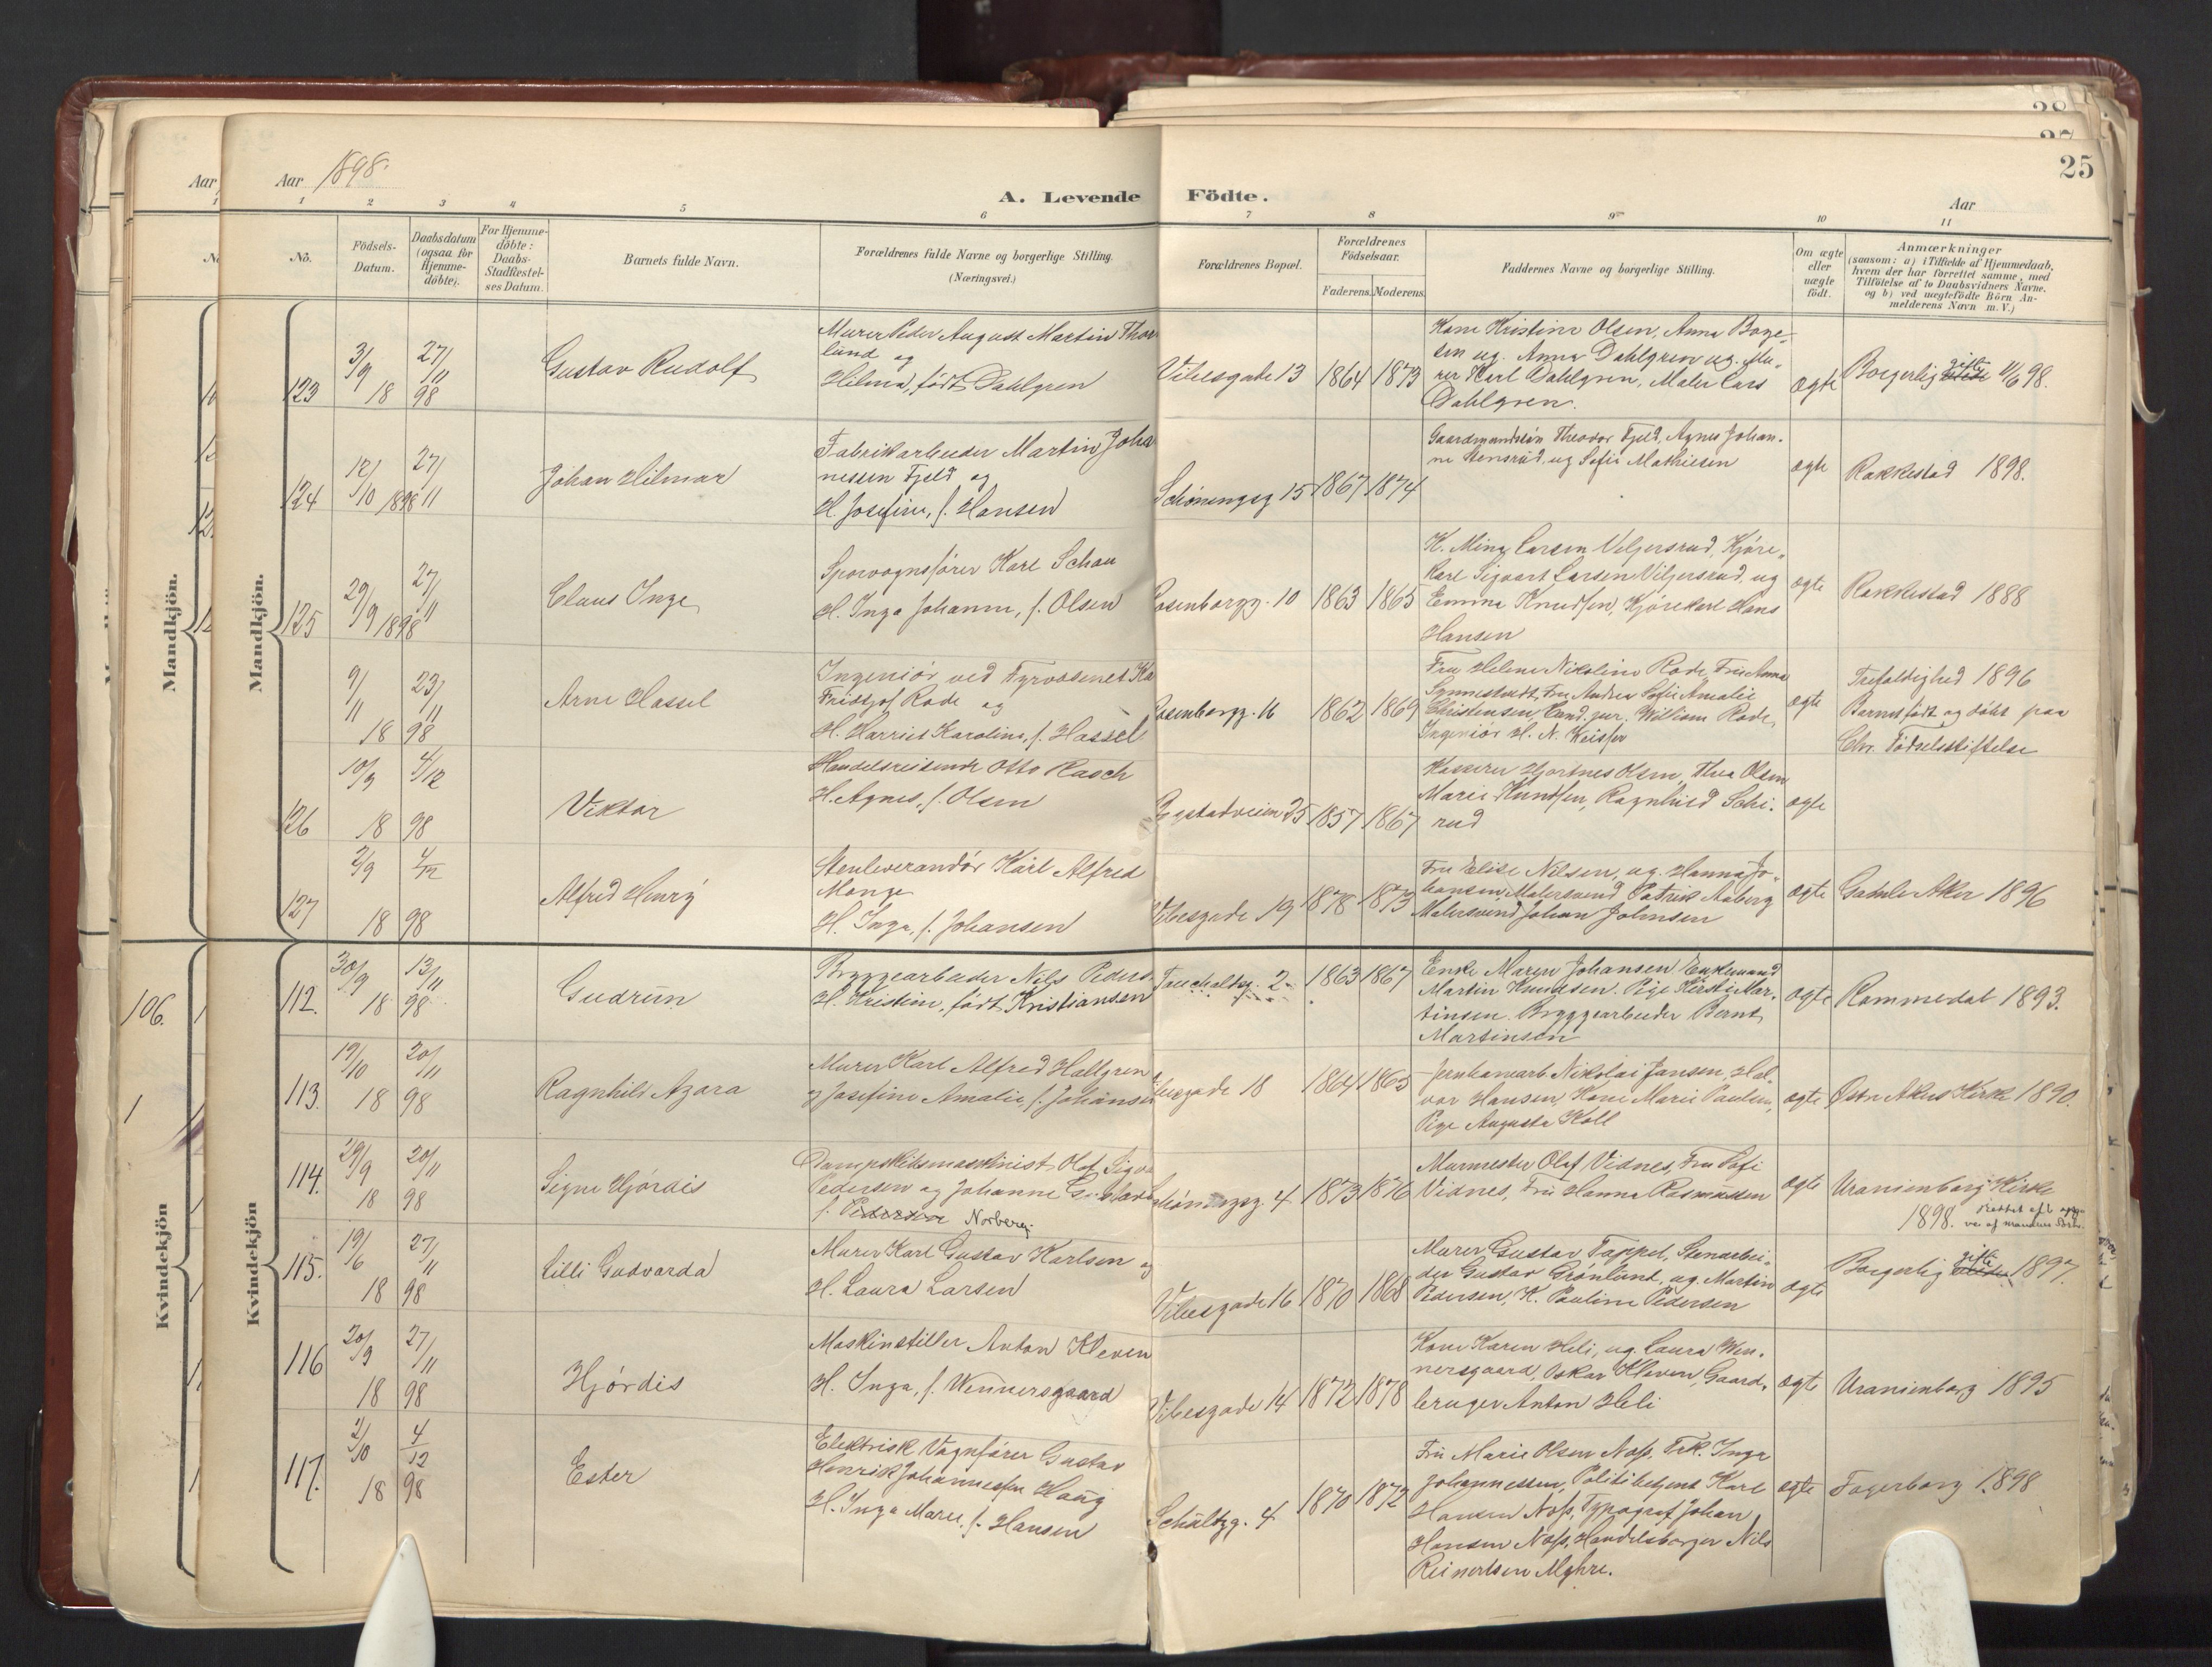 Aar 1898.
A. Levende Födte.
25
Aar
1 2 3 4 5 6 7 8 9 10 11
No. Födsels-Datum. Daabsdatum (ogsaa for Hjemme-döbte). For Hjemme-döbte: Daabs-Stadfæstel-ses Datum. Barnets fulde Navn. Forældrenes fulde Navne og borgerlige Stilling. (Næringsvei.) Forældrenes Bopæl. Forældrenes Födselsaar. Faderens. Moderens. Faddernes Navne og borgerlige Stilling. Om ægte eller uægte födt. Anmærkninger
(saasom: a) i Tilfælde af Hjemmedaab,
hvem der har forrettet samme, med
Tilföielse af to Daabsvidners Navne.
og b) ved uægtefödte Börn An-
melderens Navn m. V.)
Mandkjön.
123 3/9 18 27/11 98 Gustav Rudolf
Murer Peder August Martin Thor
lund og
Hilma, født Dahlgren
Vibesgade 13 1864 1873
Kone Kristine Olsen, Anna Boge-
sen ug. Anna Dahlgren ug. Mu-
rer Karl Dahlgren, Maler Lars
Dahlgren.
ægte Borgerlig gifte 11/6 98.
124 12/10 1898 27/11 Johan Hilmar
Fabrikarbeider Martin Joha
nessen Fjeld og
H. Josefine, f. Hansen
Schøningsg 15 1867 1874
Gaardmandssøn Theodor Fjeld, Agnes Johan-
ne Stensrud, ug Sofie Mathiesen
ægte Rakkestad 1898.
125 29/9 1898 27/11 Claus Inge
Sporvognsfører Karl Schau
H. Inga Johanne, f. Olsen
Rosenborgg. 10 1863 1865
K. Mina Larsen Veljersrud, Kjøre-
karl Sigvart Larsen Viljersrud, ug
Emma Knudsen, Kjørekarl Hans
Hansen
ægte Rakkestad 1888
9/11 18 23/11 98 Arne Hassel
Ingeniör ved Fyrvæsenet Ka
Fridtjof Rode og
H. Harriet Karoline, f. Hassel
Rosenborgg. 16 1862 1869
Fru Helene Nikoline Rode, Fru Anna
Synnestvedt, Fru Andrea Sofie Amalie
Christensen, Cand. jur. William Rode,
Ingeniör H. N.
ægte Trefoldighed 1896
Barnet født og døbt paa
Chr. Fødselsstiftelse
126 10/9 18 4/12 98 Viktor
Handelsreisende Otto Rasch
H. Agnes, f. Olsen
Bogstadveien 25 1857 1867
Kasserer Hjortnes Olsen, Thea Olsen
Marie Knudsen, Ragnhild Schi-
rud
ægte
127 2/9 18 4/12 98 Alfred Henry
Stenleverandør Karl Alfred
Mange
H. Inga, f. Johansen
Vibesgade 19 1878 1873
Fru Elise Nilsen, ug. Hanna Jo-
hansen, Malersvend Patrik Aaberg
Malersvend Johan Johnsen
ægte Gamle Aker 1896
Kvindekjön
106.
1
112. 30/9 18 13/11 98 Gudrun
Bryggearbeider Nils Peders
H. Kristine, født Kristiansen
Fauchaldsg. 2 1863 1867
Enke Maren Johansen Enkemand
Martin Knudsen. Pige Kirsti Mar-
tinsen. Bryggearbeider Bernt
Martinsen
ægte Rommedal 1893.
113. 19/10 18 20/11 98 Ragnhild Azora
Murer Karl Alfred Hallgren
og Josefine Amalie, f. Johanse
Vibesgade 18 1864 1865
Jernbanearb Nikolai Jansen, Hal-
vor Hansen Kone Marie Paulsen,
Pige Augusta Koll
ægte Østre Akers Kirke 1890.
114. 29/9 18 20/11 98 Signe Hjördis
Dampskibsmaskinist Olaf Sigv
Pedersen og Johanne Gustava
f. Pedersen Norberg.
Schøningsg. 4 1873 1876
Murmester Olaf Vidnes, Fru Sofi
Vidnes, Fru Hanna Rasmussen
ægte Uranienborg Kirke
1898.
115. 19/6 18 27/11 98 Lilli Gudvarda
Murer Karl Gustav Karlsen og
H. Laura Larsen
Vibesgade 16 1870 1868
Murer Gustav Tappel, Stenarbei-
der Gustav Grönlund, ug. Martin
Pedersen, K. Pauline Pedersen
ægte Borgerlig gifte 1897.
116 20/9 18 27/11 98 Hjördis
Maskinstiller Anton Kleven
H. Inga, f. Wennersgaard
Vibesgade 14 1872 1878
Kone Karen Heli, ug. Laura Wen-
nersgaard, Oskar Kleven, Gaard-
bruger Anton Heli
ægte Uranienborg 1895
117. 2/10 18 4/12 98 Ester
Elektrisk Vognfører Gustav
Henrik Johannessen Haug
H. Inga Marie, f. Hansen
Schultzg. 4 1870 1872
Fru Marie Olsen Næss, Frk. Inga
Johannessen, Politibetjent Karl
Hansen Næss, Typograf Johan
Hansen Næss, Handelsborger Nils
Reinertsen Myhre.
ægte Fagerborg 1898